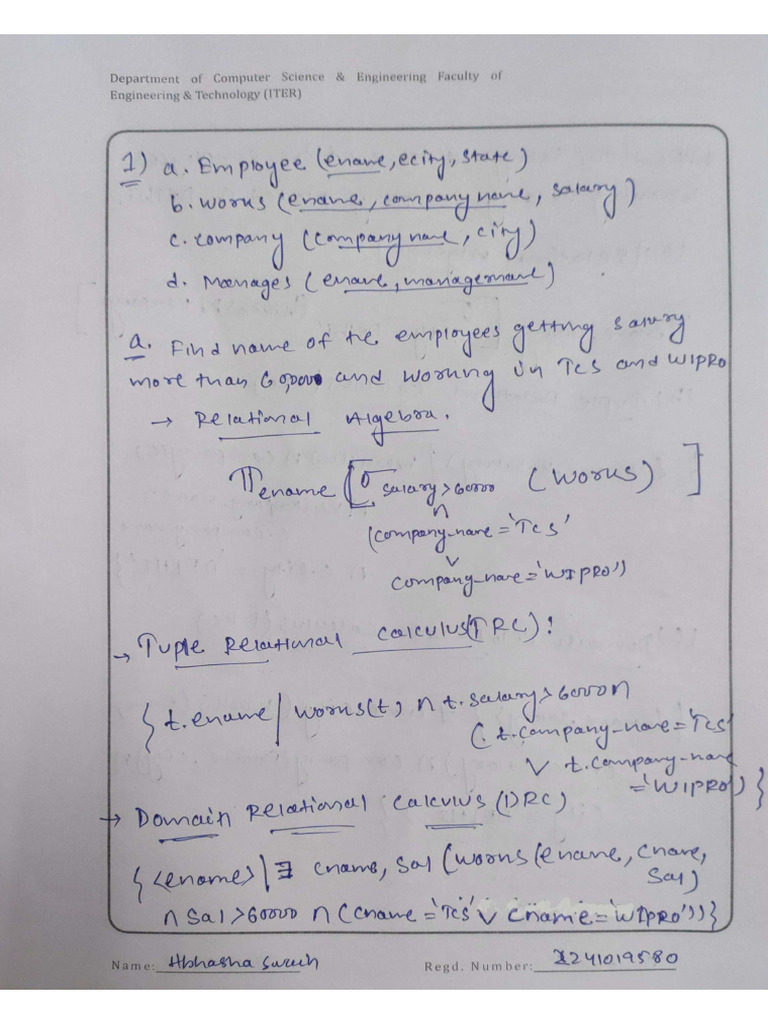 Department of Computer Science & Engineering Faculty of
Engineering & Technology (ITER)
1) a. Employee (ename, ecity, state)
b. works (ename, company name, salary)
c. company (company name, city)
d. Manages (ename, management)
a. Find name of the employees getting salary
more than 60,000 and working in TCS and WIPRO
→ Relational Algebra.
π ename [σ salary>60000 (works) ]
∩
(company-name = 'TCS'
∨
company-name = 'WIPRO')
→ Tuple Relational calculus(TRC):
{ t.ename | works(t) ∩ t.salary>60000 ∩
( t.company-name = 'TCS'
∨ t.company-name
= 'WIPRO') }
→ Domain Relational Calculus (DRC)
{ <ename> | ∃ cname, sal (works (ename, cname,
sal)
∩ sal >60000 ∩ (cname = 'TCS' ∨ cname = 'WIPRO')) }
Name: Regd. Number: 2241019580